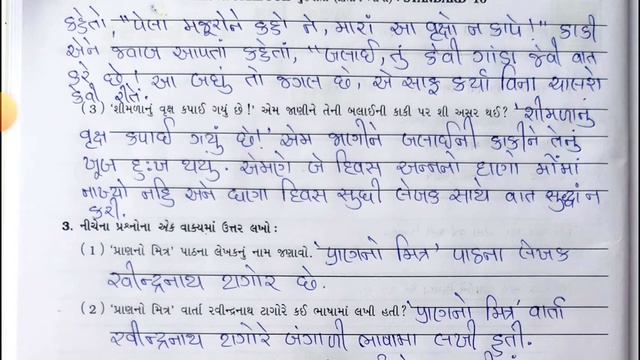 કહેતો, "પેલા મજૂરોને કહો ને, મારાં આ વૃક્ષો ન કાપે!" કાકી
એને જવાબ આપતાં કહેતાં, "બલાઈ, તું કેવી ગાંડા જેવી વાત
કરે છે! આ બધું તો જંગલ છે, એ સાફ કર્યા વિના ચાલશે
કેવી રીતે.
(3) 'શીમળાનું વૃક્ષ કપાઈ ગયું છે!' એમ જાણીને તેની બલાઈની કાકી પર શી અસર થઈ? 'શીમળાનું
વૃક્ષ કપાઈ ગયું છે!' એમ જાણીને બલાઈની કાકીને તેનું
ખૂબ દુઃખ થયું. એમણે બે દિવસ અન્નનો દાણો મોંમાં
નાખ્યો નહિ અને ઘણા દિવસ સુધી લેખક સાથે વાત સુદ્ધાં ન
કરી.
3. નીચેના પ્રશ્નોના એક વાક્યમાં ઉત્તર લખો :
(1) 'પ્રાણનો મિત્ર' પાઠના લેખકનું નામ જણાવો. 'પ્રાણનો મિત્ર' પાઠના લેખક
રવીન્દ્રનાથ ટાગોર છે.
(2) 'પ્રાણનો મિત્ર' વાર્તા રવીન્દ્રનાથ ટાગોરે કઈ ભાષામાં લખી હતી? 'પ્રાણનો મિત્ર' વાર્તા
રવીન્દ્રનાથ ટાગોરે બંગાળી ભાષામાં લખી હતી.